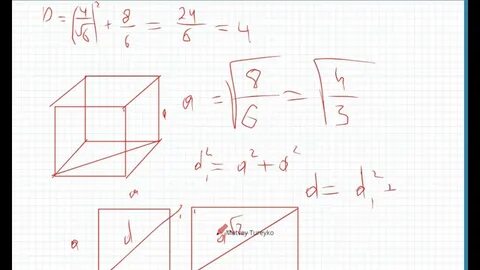 D = (4/√6)² + 8/6 = 24/6 = 4
a = √(8/6) = √(4/3)
a
d₁² = a² + a²
d = d₁² +
a
a d
a√2
Matvey Tureyko